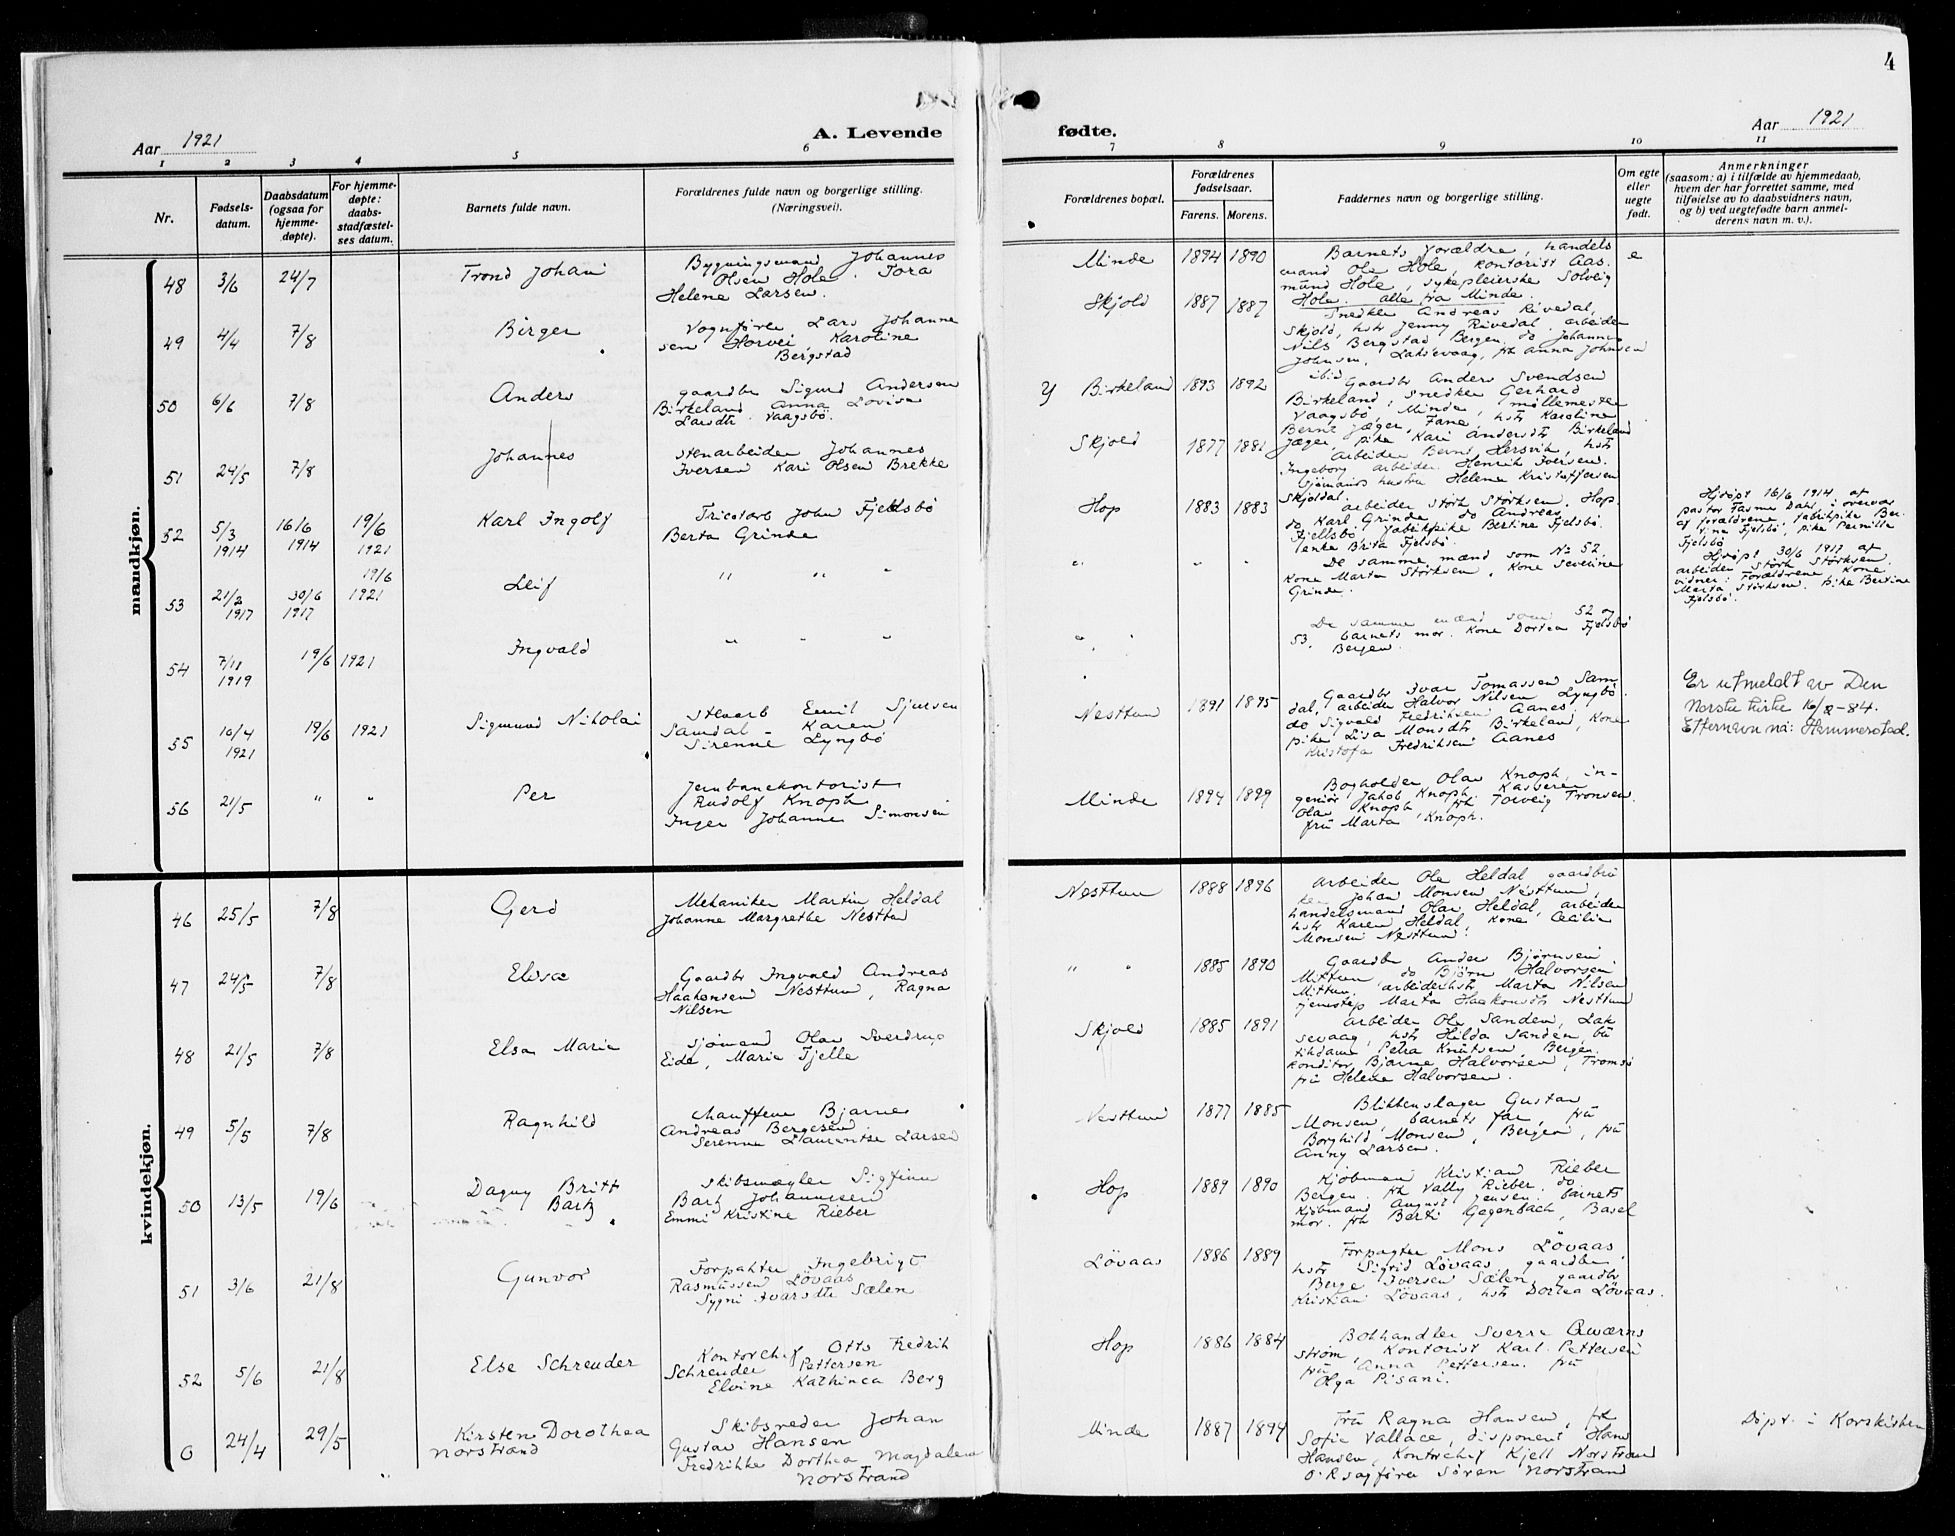 4
Aar 1921
A. Levende
fødte.
Aar 1921
1 2 3 4 5 6 7 8 9 10 11
Nr.
Fødsels-
datum.
Daabsdatum
(ogsaa for
hjemme-
døpte).
For hjemme-
døpte:
daabs-
stadfæstel-
ses datum.
Barnets fulde navn.
Forældrenes fulde navn og borgerlige stilling.
(Næringsvei).
Forældrenes bopæl.
Forældrenes
fødselsaar.
Farens. Morens.
Faddernes navn og borgerlige stilling.
Om egte
eller
uegte
født.
Anmerkninger
(saasom: a) i tilfælde av hjemmedaab,
hvem der har forrettet samme, med
tilføielse av to daabsvidners navn,
og b) ved uegtefødte barn anmel-
derens navn m. v.).
mandkjøn.
48 3/6 24/7 Trond Johan
Bygningsmand Johannes
Olsen Hole. Tora
Helene Larsen.
Minde 1894 1890
Barnets forældre, handels
mand Ole Hole, kontorist Aas.
mund Hole, sykepleierske Solveig
Hole. alle fra Minde.
e
49 4/4 7/8 Birger
Vognfører Lars Johanne
sen Horvei, Karoline
Bergstad
Skjold 1887 1887
Snedker Andreas Rivedal,
Skjold, hstr Jenny Rivedal, arbeider
Nils Bergstad Bergen, do Johannes
Johnsen, Laksevaag, frk Anna Johnsen
ibid
50 6/6 7/8 Anders
gaardbr Sigurd Andersen
Birkeland Anna Lovise
Larsdtr. Vaagsbö.
Y Birkeland 1893 1892
Gaardbr Anders Svendsen
Birkeland, snedker Gerhard
Vaagsbö, Minde, möllemester
Bernt Jæger, Fane, hstr Karoline
Jæger, pike Kari Andersdtr Birkeland
51 24/5 7/8 Johannes
stenarbeider Johannes
Iversen Kari Olsen Brekke
Skjold 1877 1881
Arbeider Bernt Hersvik, hstr
Ingeborg arbeider Henrik Iversen.
Sjömands hustru Helene Kristoffersen
Skjoldal.
52 5/3 1914 16/6 1914 19/6 1921 Karl Ingolf
Tricotarb John Fjellsbö
Berta Grinde
Hop 1883 1883
arbeider Störk Störksen, Hop.
do Karl Grinde do Andreas
Fjellsbö fabrikpike Bertine Fjelsbö.
enke Brita Fjelsbö.
Hjdöpt 16/6 1914 af
pastor Dahl, i overvær
af forældrene, fabrikpike Ber-
tine Fjelsbö, pike Pernille
Fjelsbö
53 21/2 1917 30/6 1917 19/6 1921 Leif
" " "
" " "
De samme mænd som No 52.
Kone Marta Störksen, Kone Severine
Grinde.
Hjdöpt 30/6 1917 af
arbeider Störk Störksen.
vidner: Forældrene Kone
Marta Störksen. Pike Bertine
Fjelsbö.
54 7/11 1919 19/6 1921 Ingvald
" " "
" "
De samme mænd som 52 og
53. barnets mor. Kone Dortea Fjelsbö
Bergen.
55 10/4 1921 19/6 1921 Sigmund Nikolai
Stenarb Emil Sjursen
Samdal - Karen
Sirenne Lyngbö
Nesttun 1891 1895
Gaardbr Ivar Tomassen Sam-
dal, arbeider Halvor Nilsen Lyngbö.
do Sigvald Fredriksen Aanes,
pike Lisa Monsdtr Birkeland, Kone
Kristofa Fredriksen Aanes
Er utmeldt av Den
Norske kirke 16/8-84.
Etternavn nå: Hammerstad.
56 21/5 " " Per
Jernbanekontorist
Rudolf Knoph
Inger Johanne Simonsen
Minde 1894 1899
Bogholder Olav Knoph, in-
geniör Jakob Knoph. Kasserer
Olav Knoph frk Torveig Tronsen.
fru Marta Knoph.
kvindekjøn.
46 25/5 7/8 Gerd
Mekaniker Martin Heldal
Johanne Margrethe Nesttun
Nesttun 1888 1896
Arbeider Ole Heldal gaardbru
ker Johan Monsen Nesttun,
handelsmand Olav Heldal, arbeider
hstr Karen Heldal, kone Cecilie
Monsen Nesttun.
47 24/5 7/8 Elisæ
Gaardbr Ingvald Andreas
Haakonsen Nesttun, Ragna
Nilsen
" " 1885 1890
Gaardbr Anders Bjørnsen
Mittun do Björn Halvorsen
Mittun, arbeiderhstr Marta Nilsen
tjenstep Marta Haakonsdtr Nesttun
48 21/5 7/8 Elsa Marie
sjømand Olav Sverdrup
Eide, Marie Tjelle
Skjold 1885 1891
Arbeider Ole Sanden, Lak
sevaag, hstr Hilda Sanden, bu
tikdame Petra Knutsen, Bergen.
konditor Bjarne Halvorsen, Tromsö
fru Helene Halvorsen.
49 5/5 7/8 Ragnhild
chauffeur Bjarne
Andreas Bergesen
Serenne Laurentse Larsen
Nesttun 1877 1885
Blikkenslager Gustav
Monsen, barnets far, fru
Borghild Monsen, Bergen, fru
Anny Larsen.
50 13/5 19/6 Dagny Britt
Bartz
Skibsmægler Sigfinn
Bartz Johannesen
Emmi Kristine Rieber
Hop 1889 1890
Kjöbmand Kristian Rieber
Bergen. frk Vally Rieber. do
Kjöbmand August Jensen. barnets
mor. frk Berti Gegenbach, Basel
51 3/6 21/8 Gunvor
Forpakter Ingebrigt
Rasmussen Lövaas
Sygni Ivarsdtr Sælen
Lövaas 1886 1889
Forpagter Mons Lövaas,
hstr Sigrid Lövaas gaardbr
Berge Iversen Sælen, gaardbr
Kristian Lövaas, hstr Dortea Lövaas.
52 5/6 21/8 Else Schreuder
Kontorchef Otto Fredrik
Schreuder Pettersen
Elvine Kathinca Berg
Hop 1886 1884
Bokhandler Sverre Qværn
ström, Kontorist Karl Pettersen
fru Anna Pettersen. fru
Olga Pisani.
0 24/4 29/5 Kirsten Dorothea
Norstrand
Skibsreder Johan
Gustav Hansen
Fredrikke Dorthea Magdalene
Norstrand
Minde 1887 1894
Fru Ragna Hansen, frk
Sofie Wallace, disponent Hans
Hansen, Kontorchef Kjell Norstrand
O.R.sagförer Sören Norstrand
Döpt i Korskirken